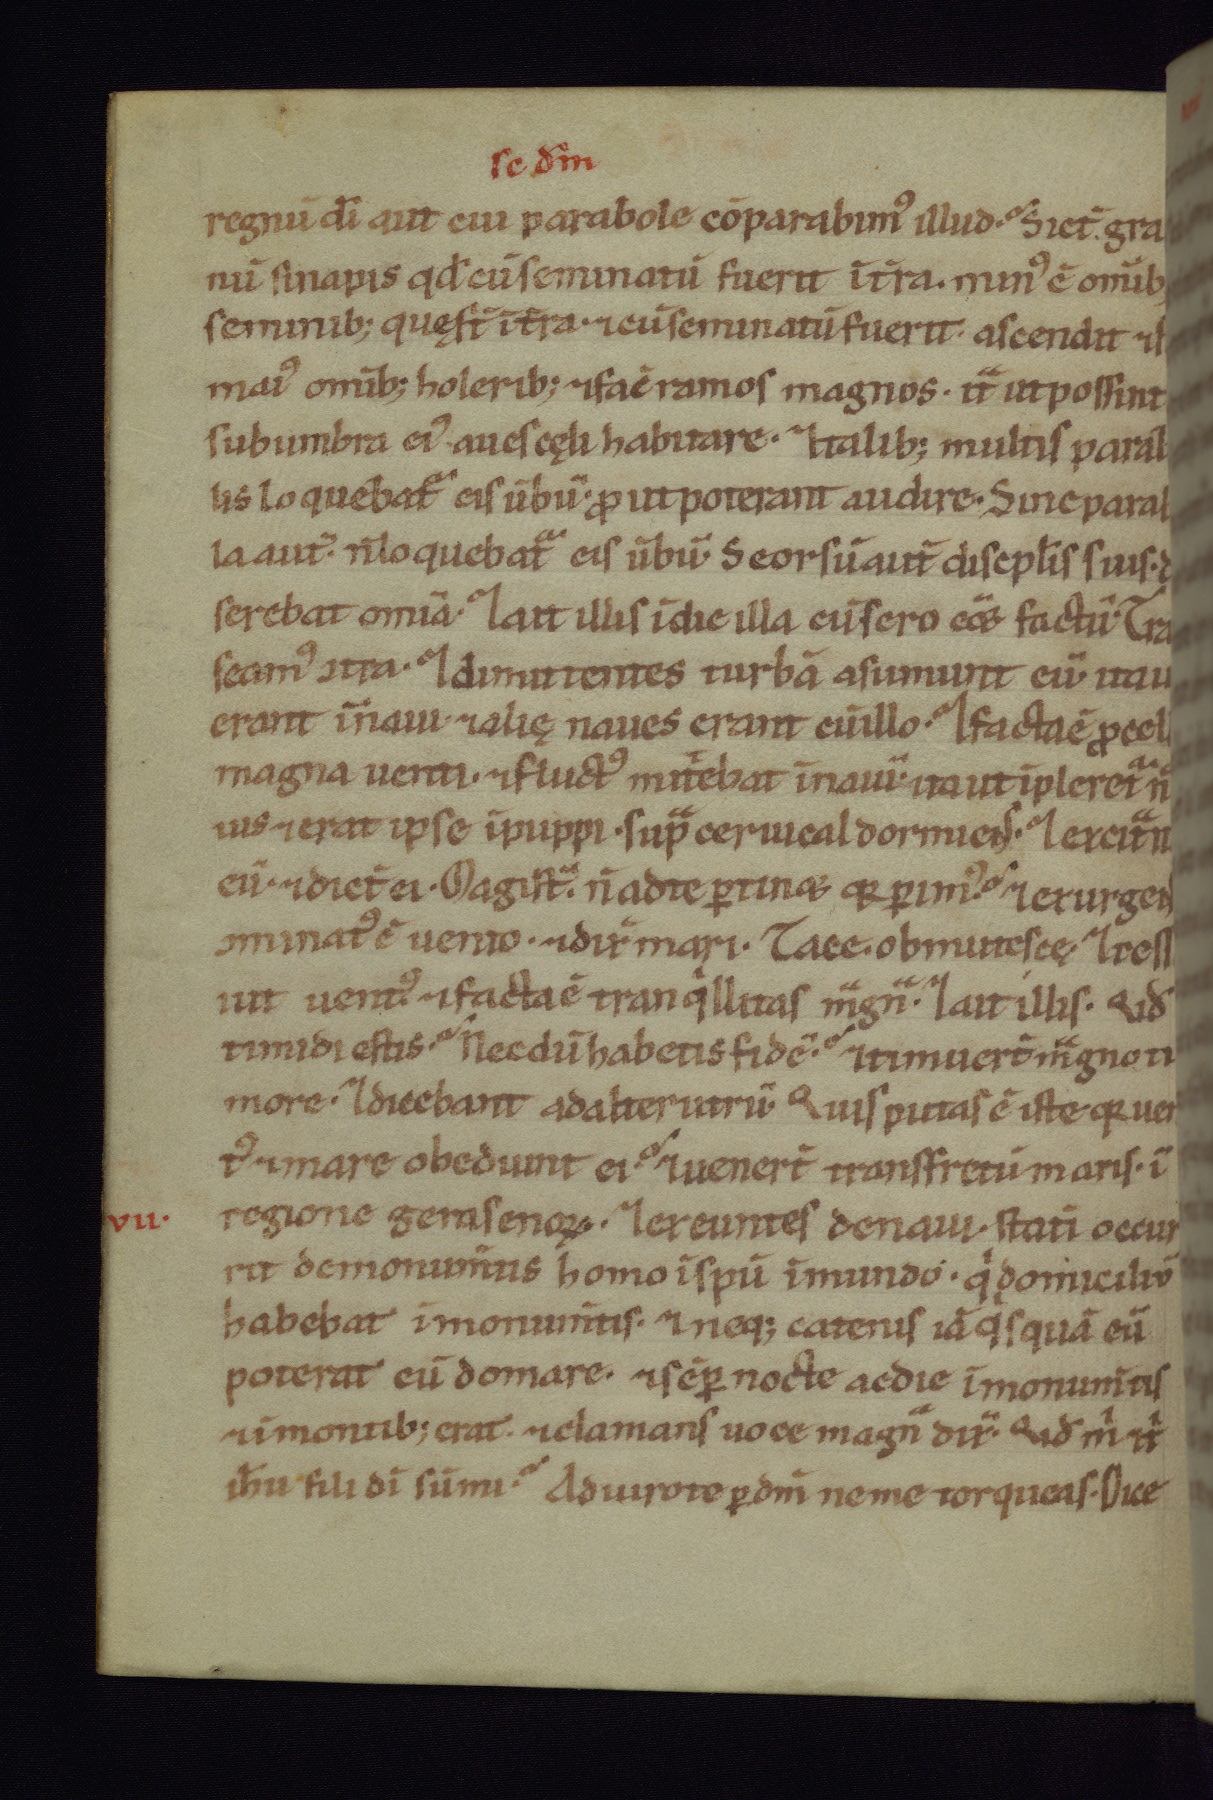 sc dm̄
regnū dī aut cui parabole cōparabim᷒ illud. Sict̄. gra
nū sinapis qd̄ cū seminatū fuerit ī tr̄a. min᷒ ē om̄ib;
seminib; quę st̄ ī tr̄a. ⁊ cū seminatū fuerit. ascendit ⁊ f
mai᷒ om̄ib; holerib; ⁊ faē ramos magnos. ita ut possint
sub umbra ei᷒ aues cęli habitare. ⁊ talib; multis parab
lis loquebat᷑ eis ūbū. ꝓut poterant audire. Sine parab
la aut̄. n̄ loquebat᷑ eis ūbū. Seorsū aut̄ discip̄lis suis. d
serebat om̄ia. ⁊ ait illis ī die illa cū sero eēt factū. Tra
seam᷒ ɔtra. ⁊ dimittentes turbā asumunt eū. ita u
erant ī naui. ⁊ alię naues erant cū illo. ⁊ facta ē ꝓcell
magna uenti. ⁊ fluct᷒ mitt̄ebat ī nauī. ita ut īpleret᷑ na
uis ⁊ erat ipse ī puppi. sup̄ ceruical dormiens. ⁊ excitan
eū. ⁊ dict̄ ei. Magist̄. n̄ ad te ꝑtinet q̄ ꝑim᷒. ⁊ exurgens
ɔminat᷒ ē uento. ⁊ dix̄ mari. Tace. obmutescę. ⁊ cess
uit uent᷒. ⁊ facta ē tranqⁱllitas magna. ⁊ ait illis. Qid
timidi estis. Necdū habetis fidē. ⁊ timuert̄ magno ti
more. ⁊ dicebant ad alterutrū. Quis putas ē iste q̄ uen
t᷒ ⁊ mare obediunt ei. ⁊ uenert̄ trans fretū maris. ī
vii. regione gerasenoꝝ. ⁊ exeuntes de naui. statī occur
rit de monum̄tis homo ī spū īmundo. qⁱ domiciliū
habebat ī monum̄tis. ⁊ neq; catenis iā qⁱsquā eū
poterat eū domare. ⁊ sēꝑ nocte ac die ī monum̄tis
⁊ ī montib; erat. ⁊ clamans uoce magna dix̄. Qid mⁱ ⁊ tⁱ
ih̄u fili dī sūmi. Adiuro te ꝑ dm̄ ne me torqueas. Dice